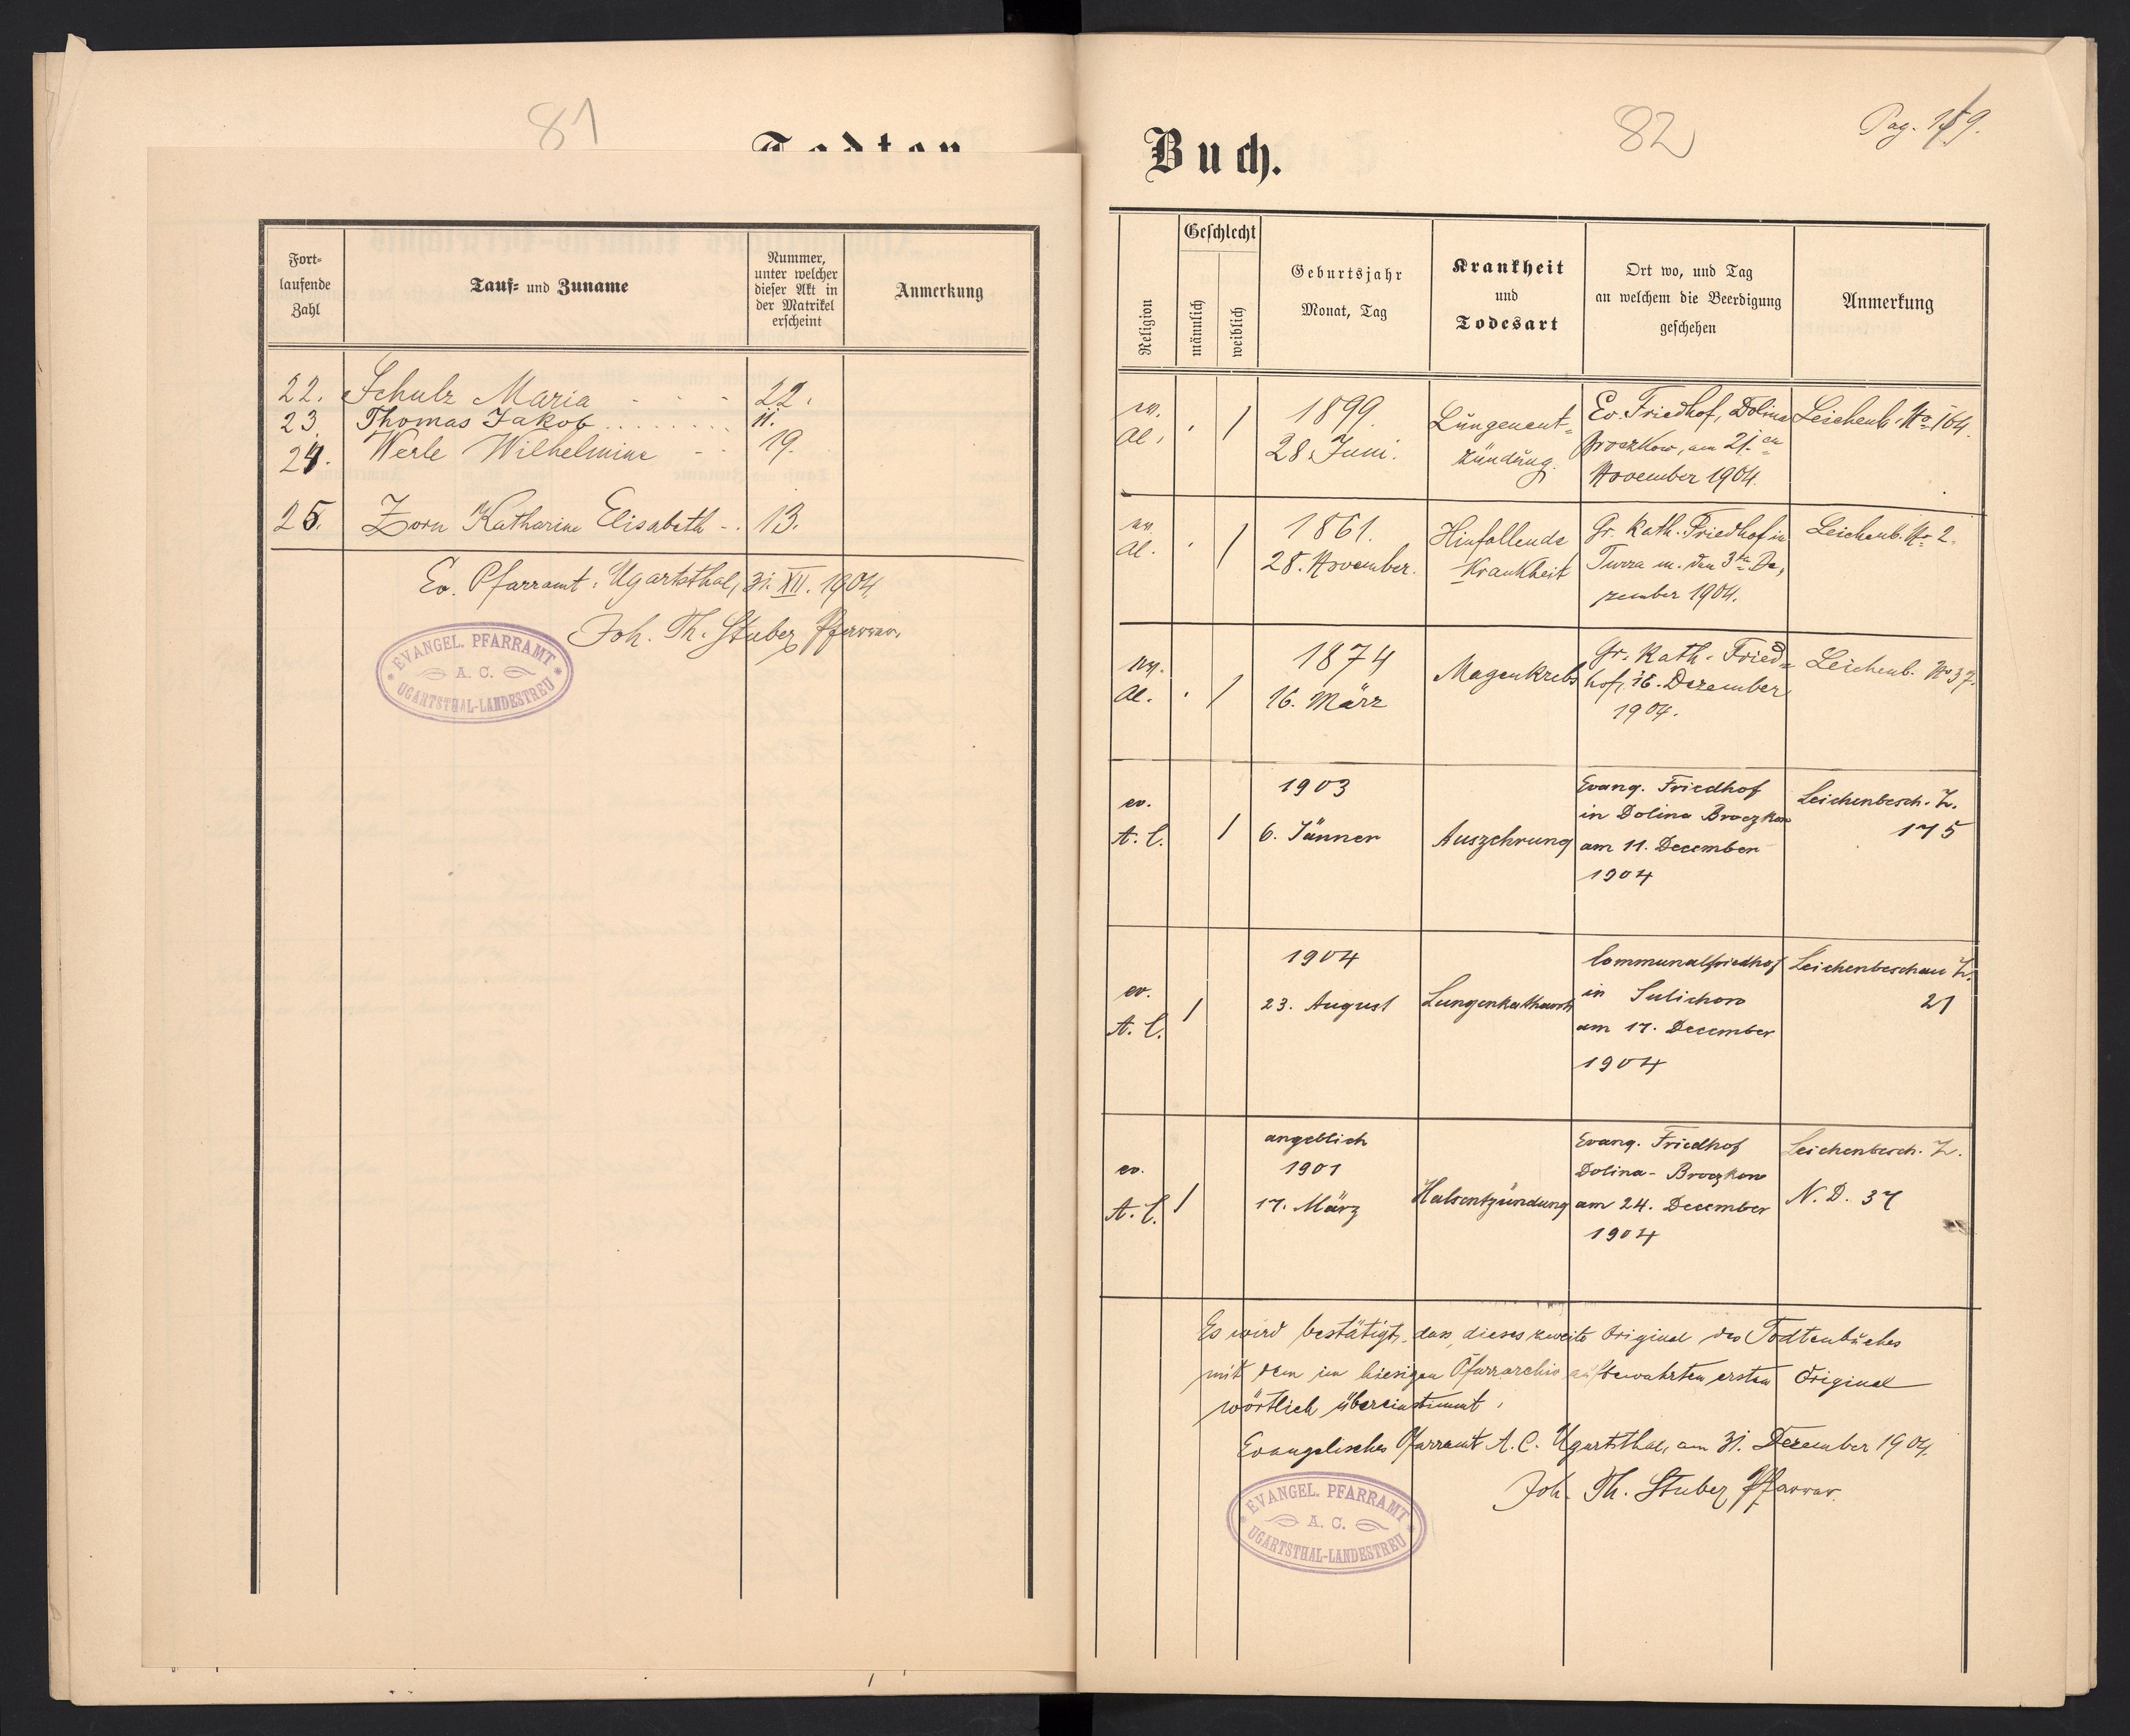 81
Todten
Fort-
laufende
Zahl
Tauf- und Zuname
Nummer,
unter welcher
dieser Akt in
der Matrikel
erscheint
Anmerkung
22. Schulz Maria - - - 22.
23. Thomas Jakob ........ 11.
24. Werle Wilhelmine - - 19.
25. Zorn Katharine Elisabeth - . 13.
Ev. Pfarramt: Ugartsthal, 31. XII. 1904
Joh. Th. Stuber Pfarrer.
EVANGEL. PFARRAMT
A. C.
UGARTSTHAL-LANDESTREU
82
Pag. 119.
Buch.
Religion
Geschlecht
männlich
weiblich
Geburtsjahr
Monat, Tag
Krankheit
und
Todesart
Ort wo, und Tag
an welchem die Beerdigung
geschehen
Anmerkung
ev.
AC.
1
1899.
28. Juni.
Lungenent-
zündung.
Ev. Friedhof, Dolina
Broczkow, am 21. en
November 1904.
Leichenb. No 164.
ev.
AC.
1
1861.
28. November.
Hinfallende
Krankheit
Gr. Kath. Friedhof in
Turza w. den 3ten De,
zember 1904.
Leichenb. No 2.
ev.
AC.
1
1874
16. März
Magenkrebs
Gr. Kath. Fried-
hof, 16. Dezember
1904.
Leichenb. No 37.
ev.
A. C.
1
1903
6. Jänner
Auszehrung
Evang. Friedhof
in Dolina Broczkow
am 11. December
1904
Leichenbesch. Z.
175
ev.
A. C.
1
1904
23. August
Lungenkatharrh
Communalfriedhof
in Sulichow
am 17. December
1904
Leichenbeschau Z.
21
ev.
A. C.
1
angeblich
1901
17. März
Halsentzündung
Evang. Friedhof
Dolina - Broczkow
am 24. December
1904
Leichenbesch. Z.
N. D. 37
Es wird bestätigt, dass dieses zweite Original des Todtenbuches
mit dem im hiesigen Pfarrarchiv aufbewahrten ersten Original
wörtlich übereinstimmt.
Evangelisches Pfarramt A. C. Ugartsthal, am 31. Dezember 1904.
Joh. Th. Stuber Pfarrer.
EVANGEL. PFARRAMT
A. C.
UGARTSTHAL-LANDESTREU